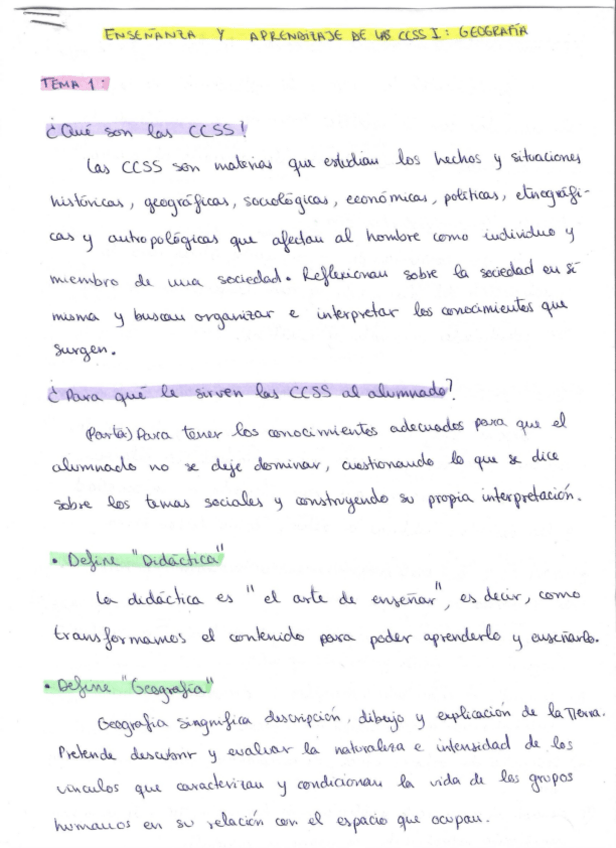 ENSEÑANZA Y APRENDIZAJE DE LAS CCSS I: GEOGRAFÍA
TEMA 1:
¿Qué son las CCSS?
Las CCSS son materias que estudian los hechos y situaciones
históricas, geográficas, sociológicas, económicas, políticas, etnográfi-
cas y antropológicas que afectan al hombre como individuo y
miembro de una sociedad. Reflexionan sobre la sociedad en sí
misma y buscan organizar e interpretar los conocimientos que
surgen.
¿Para qué le sirven las CCSS al alumnado?
(Parta) Para tener los conocimientos adecuados para que el
alumnado no se deje dominar, cuestionando lo que se dice
sobre los temas sociales y construyendo su propia interpretación.
• Define "Didáctica"
La didáctica es "el arte de enseñar", es decir, como
transformamos el contenido para poder aprenderlo y enseñarlo.
• Define "Geografía"
Geografía singnifica descripción, dibujo y explicación de la Tierra.
Pretende descubrir y evaluar la naturaleza e intensidad de los
vínculos que caracterizan y condicionan la vida de los grupos
humanos en su relación con el espacio que ocupan.